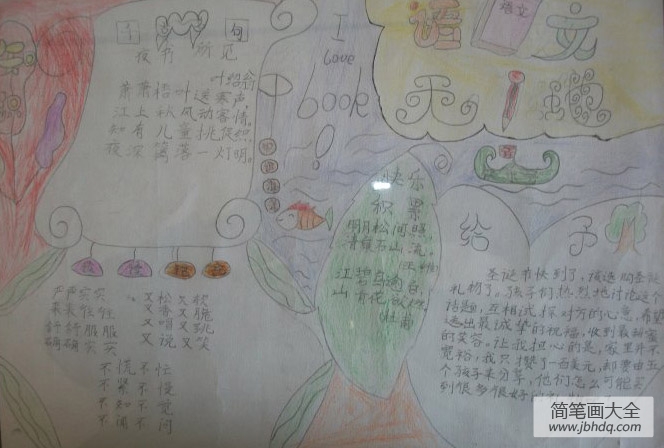 夜书所见
叶绍翁
萧萧梧叶送寒声,
江上秋风动客情。
知有儿童挑促织,
夜深篱落一灯明。
I
Love
book
!
语文
语文
天
快乐
积累
明月松间照,
清泉石上流。
江碧鸟逾白,
山青花欲然。
杜甫
给予
圣诞节快到了,该选购圣诞
礼物了。孩子们热烈地讨论这个
话题,互相试探对方的心意,希望
选出最诚挚的祝福,收到最甜蜜
的笑容。让我担心的是,家里并不
宽裕,我只攒了一百美元,却要由五
个孩子来分享,他们怎么可能买
到很多很好的
严严实实
来来往往
舒舒服服
确确实实
又松又软
又香又脆
又唱又跳
又说又笑
不慌不忙
不紧不慢
不知不觉
不闻不问
简笔画大全
www.jbhdq.com